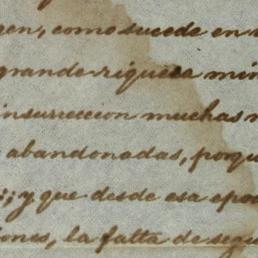 gen, como sucede en
grande riquesa min
insurreccion muchas
abandonadas, porqu
; y que desde esa epo
iones, la falta de segu